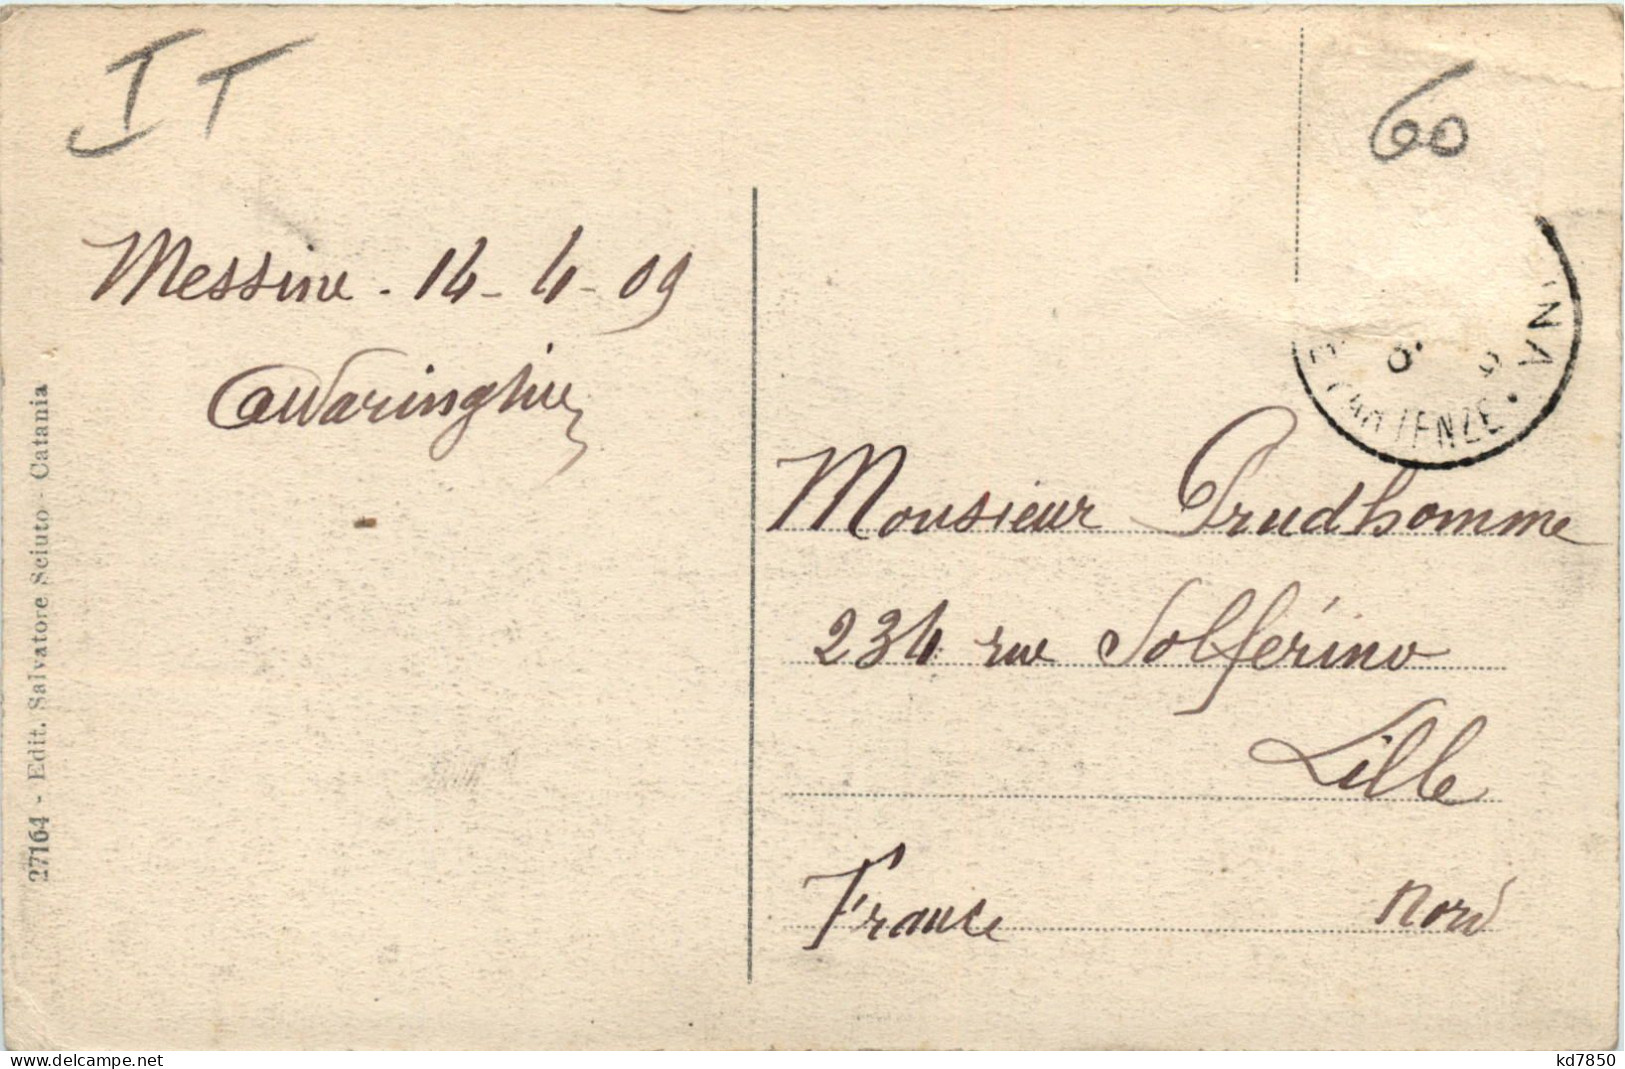 IT
60
Messine - 14 - 4 - 09
Monsieur Prudhomme
234 rue Solférino
Lille
France Nord
27164 - Edit. Salvatore Sciuto - Catania
delcampe.net
kd7850